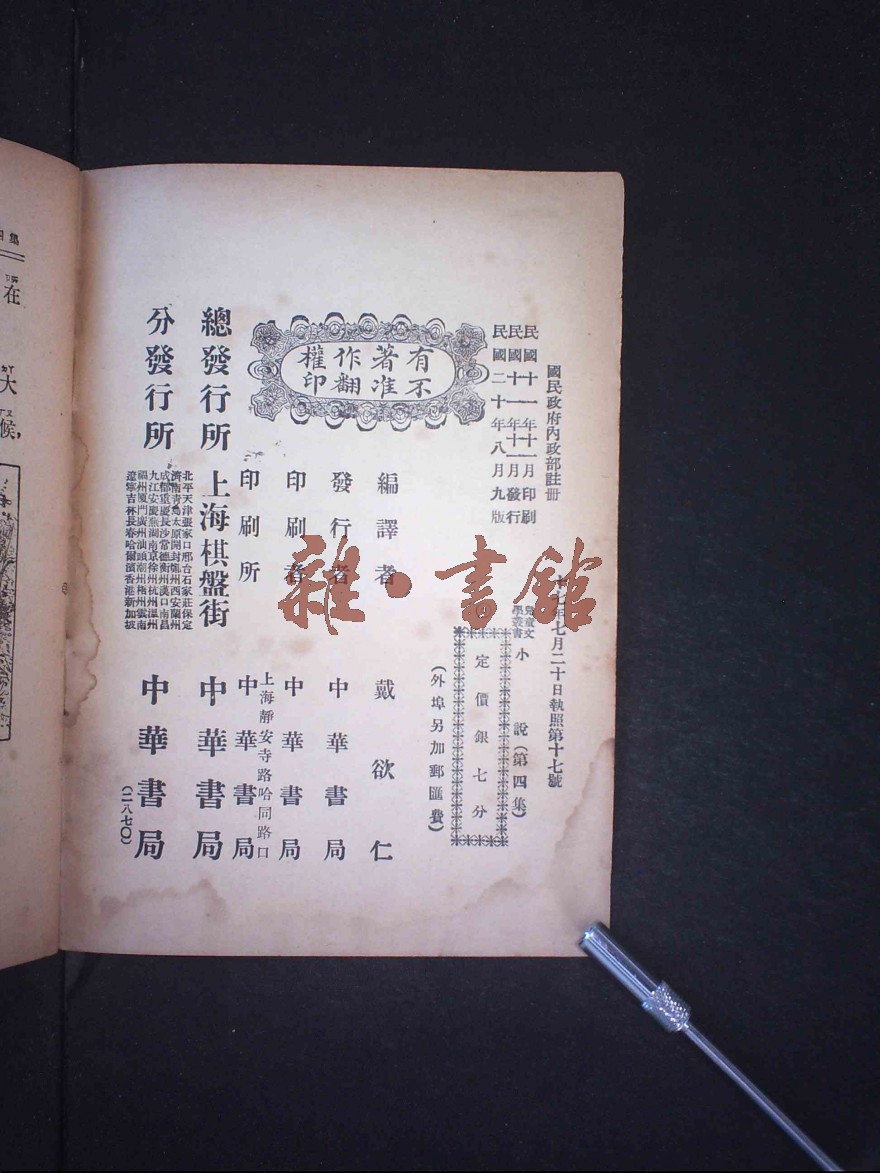 國民政府內政部註冊
十七年七月二十日執照第十七號
民國十一年十一月印刷
民國十一年十一月發行
民國二十年八月九版
兒童文學叢書 小說（第四集）
定價銀七分
（外埠另加郵匯費）
有著作權
不准翻印
編譯者 戴欲仁
發行者 中華書局
印刷者 中華書局
印刷所 上海靜安寺路哈同路口 中華書局
總發行所 上海棋盤街 中華書局
分發行所 中華書局
北平天津張家口邢台石家莊保定
濟南青島太原開封鄭州西安蘭州
成都重慶長沙常德衡州漢口南昌
九江安慶蕪湖南京徐州杭州溫州
福州廈門廣州汕頭潮州梧州雲南
遼寧吉林長春哈爾濱香港新加坡
（二八七〇）
集
在
大
候，
雜·書館